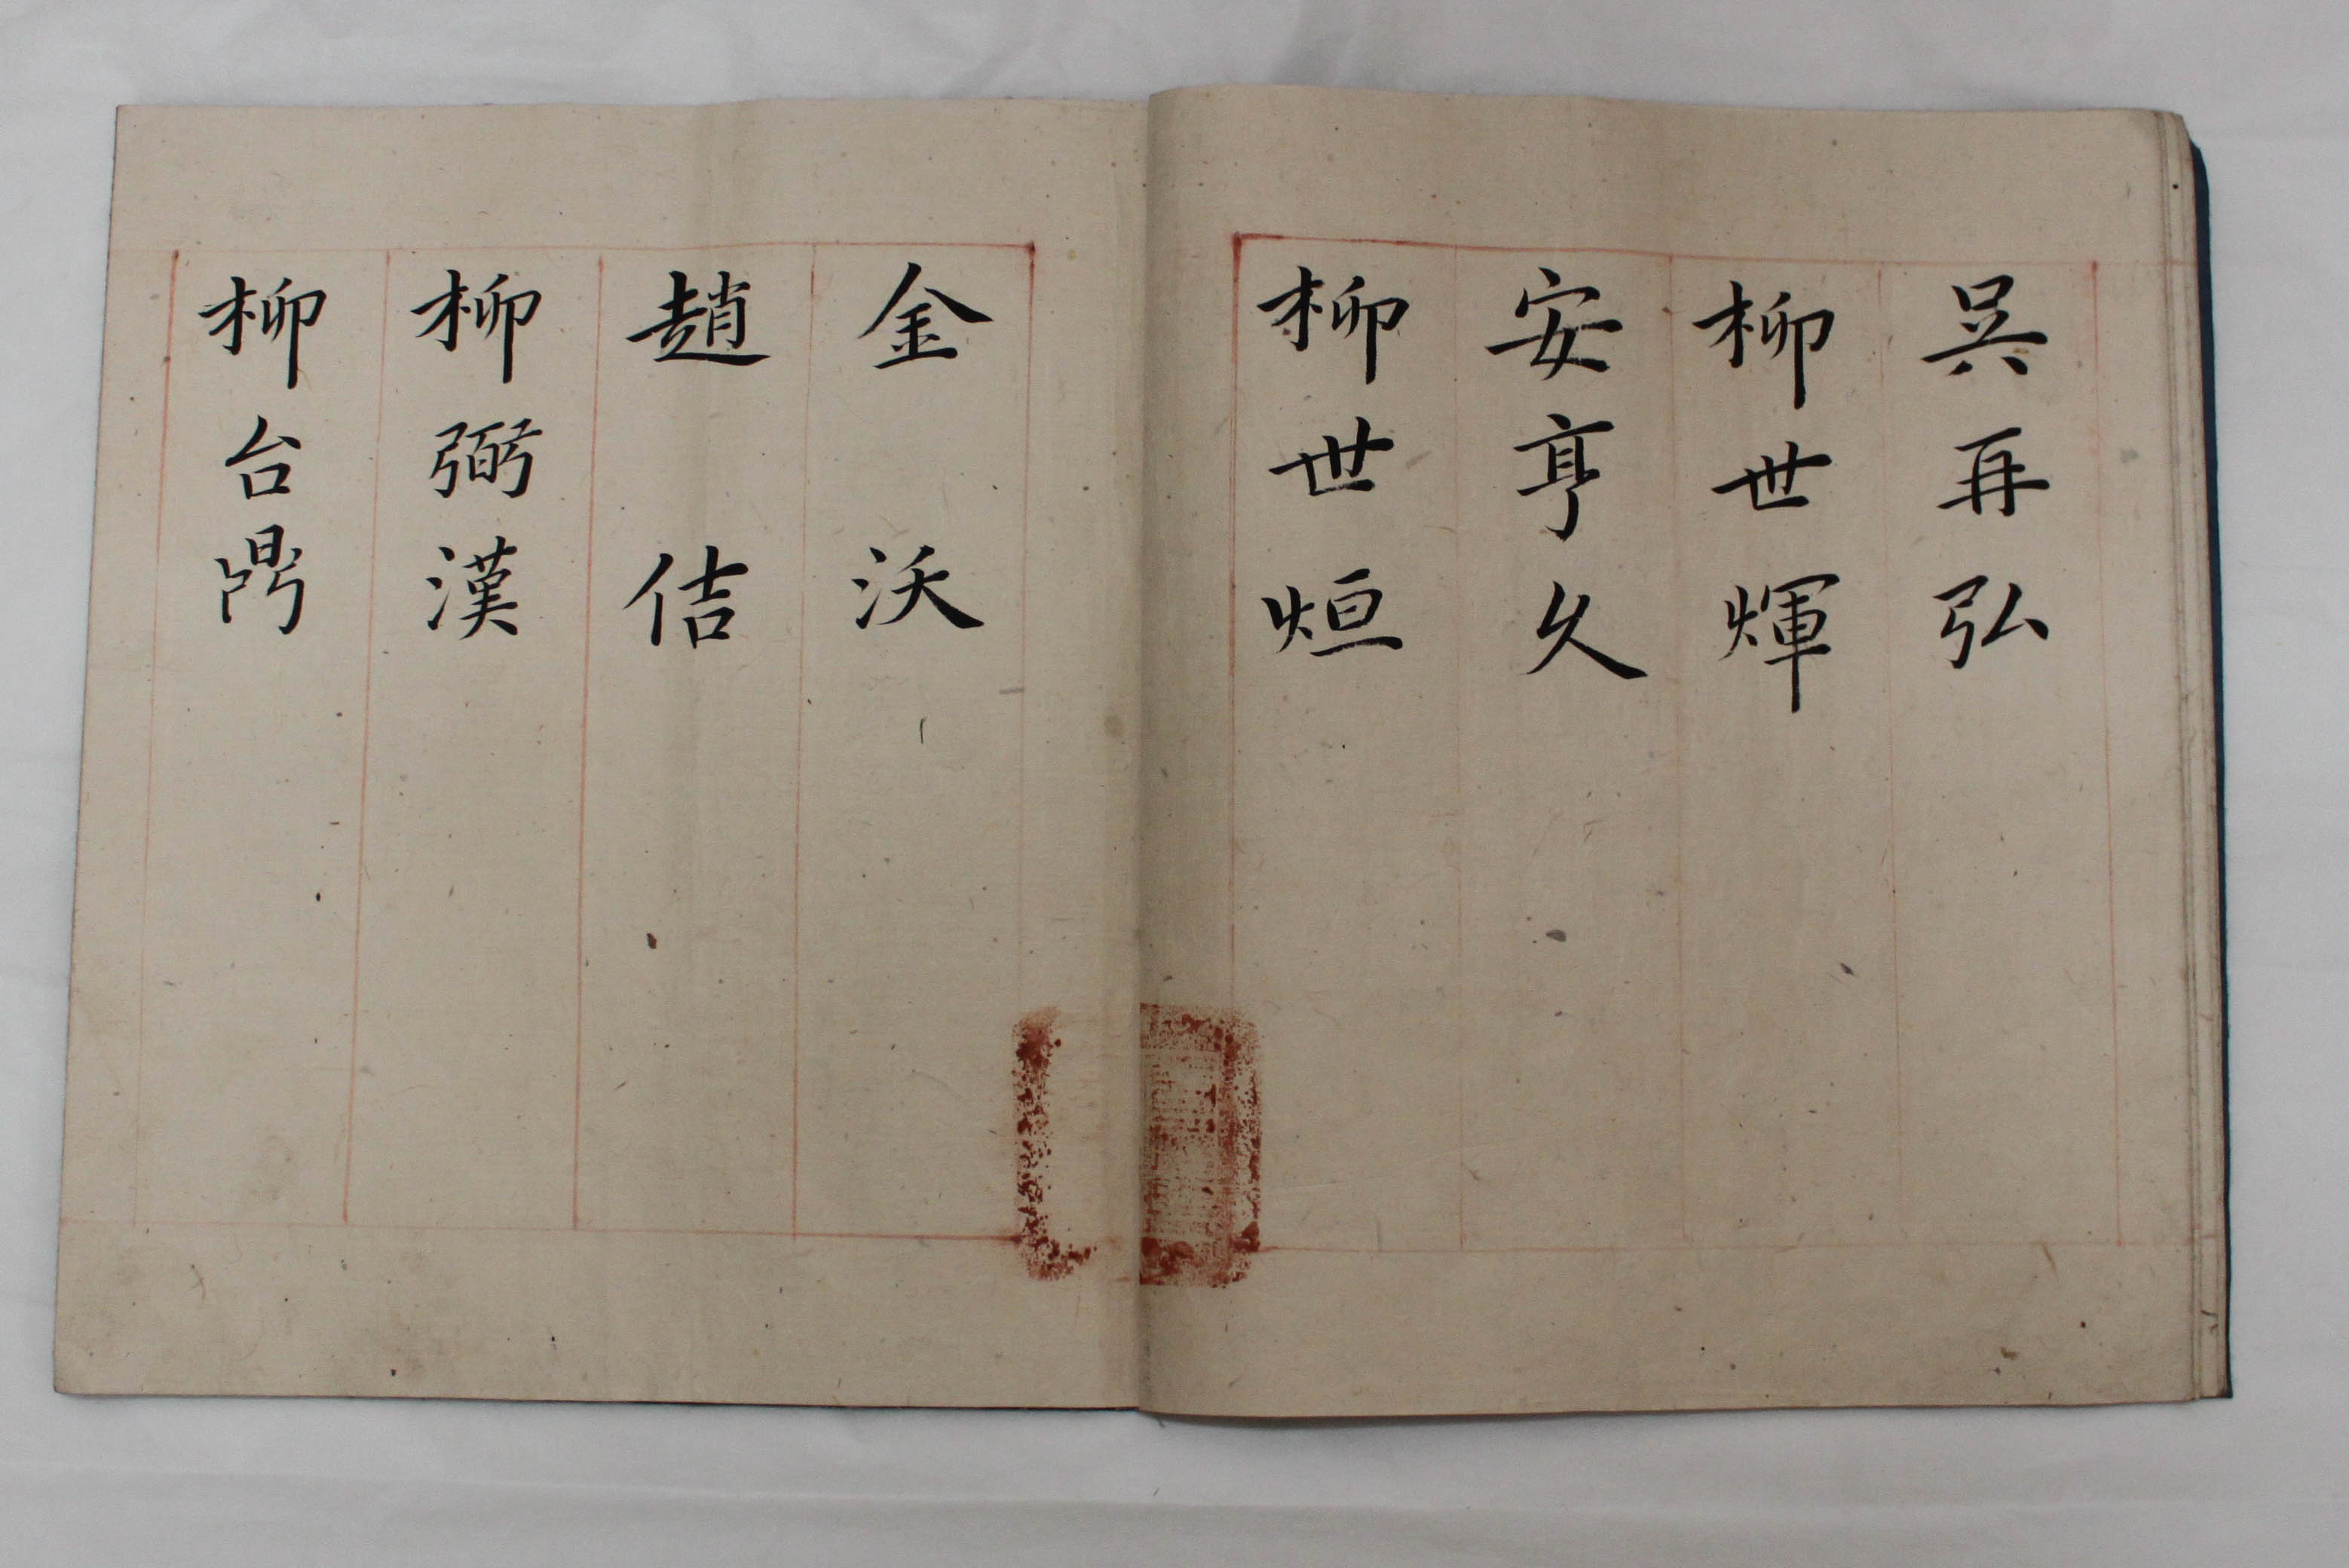 吳再弘
柳世輝
安亨久
柳世烜
金沃
趙佶
柳弼漢
柳台鼎